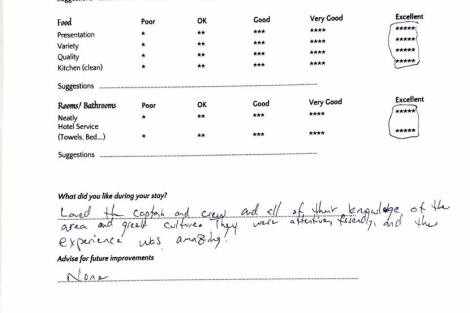 Suggestions
Food Poor OK Good Very Good Excellent
Presentation * ** *** **** *****
Variety * ** *** **** *****
Quality * ** *** **** *****
Kitchen (clean) * ** *** **** *****
Suggestions
Rooms/ Bathrooms Poor OK Good Very Good Excellent
Neatly * ** *** **** *****
Hotel Service
(Towels, Bed...) * ** *** **** *****
Suggestions
What did you like during your stay?
Loved the captain and crew and all of their knowledge of the
area and greek culture. They were attentive, friendly, and the
experience was amazing.
Advise for future improvements
None